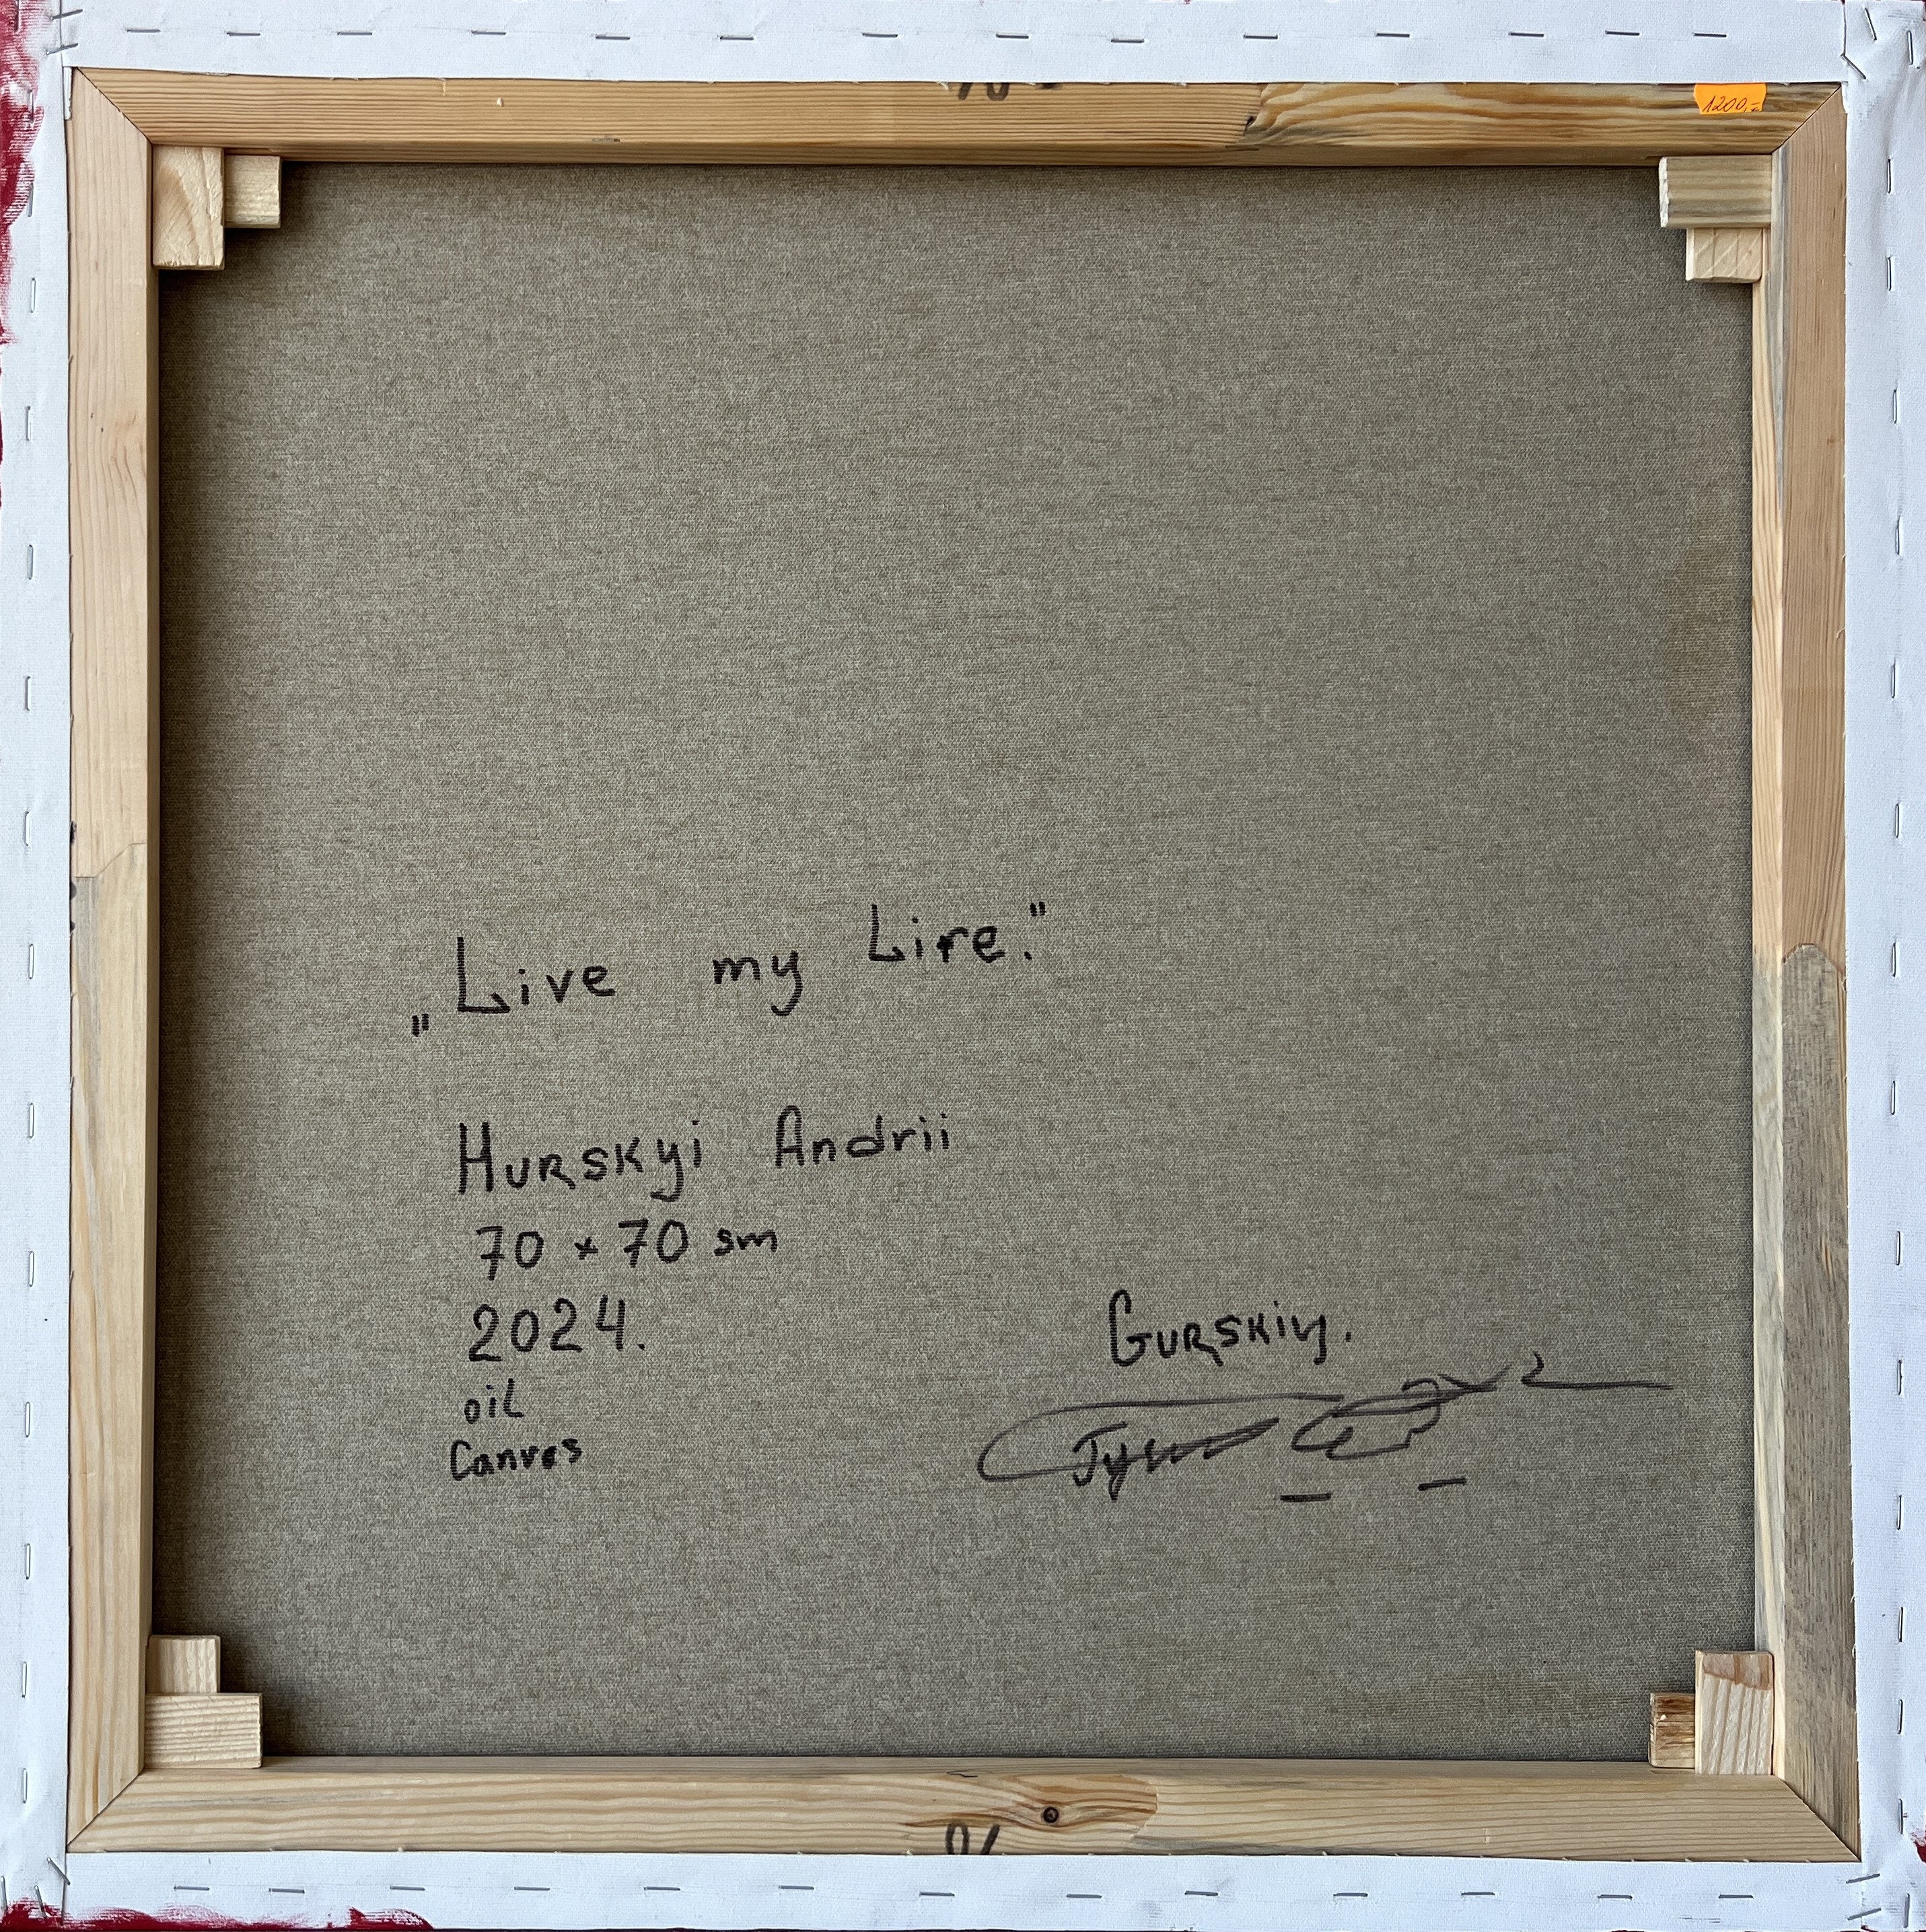 1200,-
„Live my Lire."
Hurskyi Andrii
70 x 70 sm
2024.
oil
Canvas
Gurskiy.